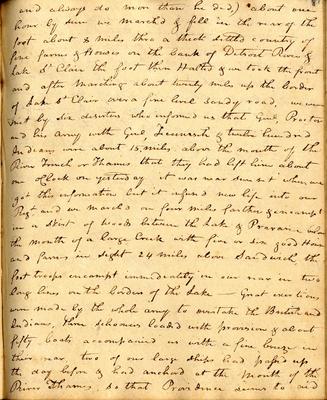 and always do more than he did) about one
hour by sun we march'd & fell in the rear of the
foot about 8 miles thro a thick settled country of
fine farms & Houses on the bank of Detroit River &
Lake St Clair the foot then Halted & we took the front
and after Marching about twenty miles up the border
of Lake St Clair over a fine level sandy road, we were
met by six deserters who informed us that Genl Proctor
and his army with Genl Tecumseh & twelve hundred
Indians were about 15 miles above the mouth of the
River Trench or Thames that they had left him about
one oClock on yesterday it was near sunset when we
got this information but it infused new life into our
Regt and we marched on four miles farther & encampt
in a skirt of woods between the Lake & Prararie below
the mouth of a large Creek with five or six good Houses
and farms in sight 24 miles above Sandwich the
foot troops encampt immediately in our rear in two
long lines on the borders of the Lake — Great exertions
were made by the whole army to overtake the British and
Indians, three schooners loaded with provision & about
fifty boats accompanied us with a fine breeze in
their rear, two of our large ships had passed up
the day before & had anchored at the Mouth of the
River Thames, so that Providence seems to aid